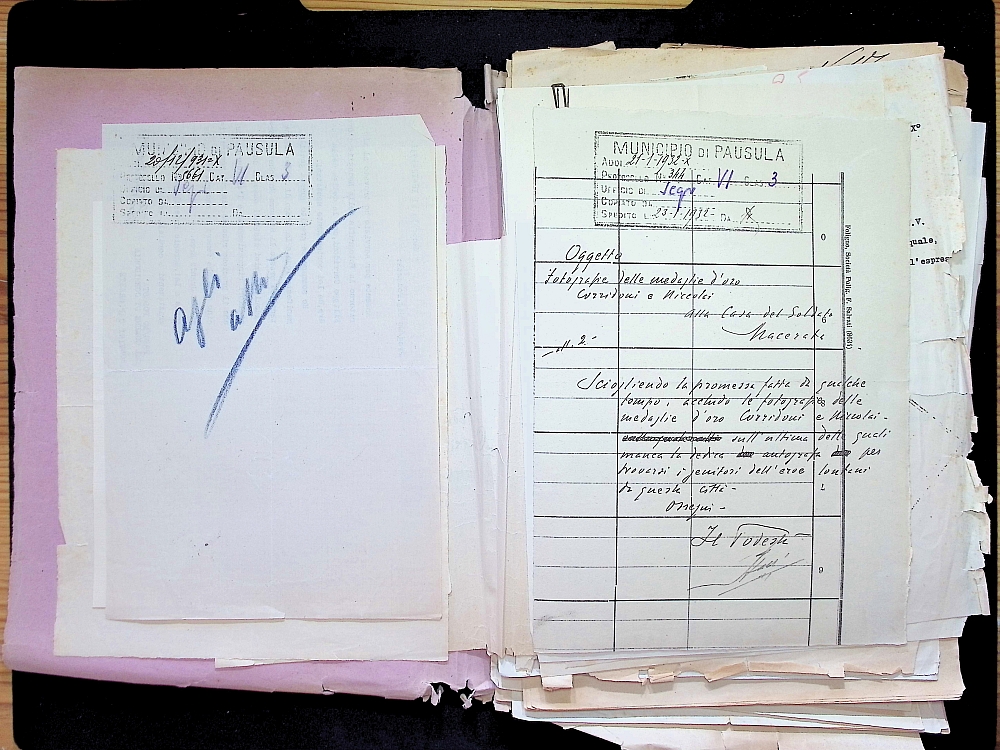 MUNICIPIO DI PAUSULA
20/12/931-X
PROTOCOLLO N. 5661 CAT. VI CLAS. 3
UFFICIO DI Segr
COPIATO DA
SPEDITO L. DA
agli
atti
MUNICIPIO DI PAUSULA
ADDI 21-1-1932-X
PROTOCOLLO N. 344 CAT. VI CLAS. 3
UFFICIO DI Segr
COPIATO DA
SPEDITO L. 23-1-1932- DA
Oggetto
Fotografie delle medaglie d'oro
Corridoni e Niccolai
Alla Casa del Soldato
Macerata
-N. 2-
Sciogliendo la promessa fatta da qualche
tempo, accludo le fotografie delle
medaglie d'oro Corridoni e Niccolai-
sull'ultima delle quali
manca la dedica autografa per
trovarsi i genitori dell'eroe lontani
da questa città-
Ossequi-
Il Podestà
Foligno, Società Polig. F. Salvati
X°
.V.
quale,
l'espres